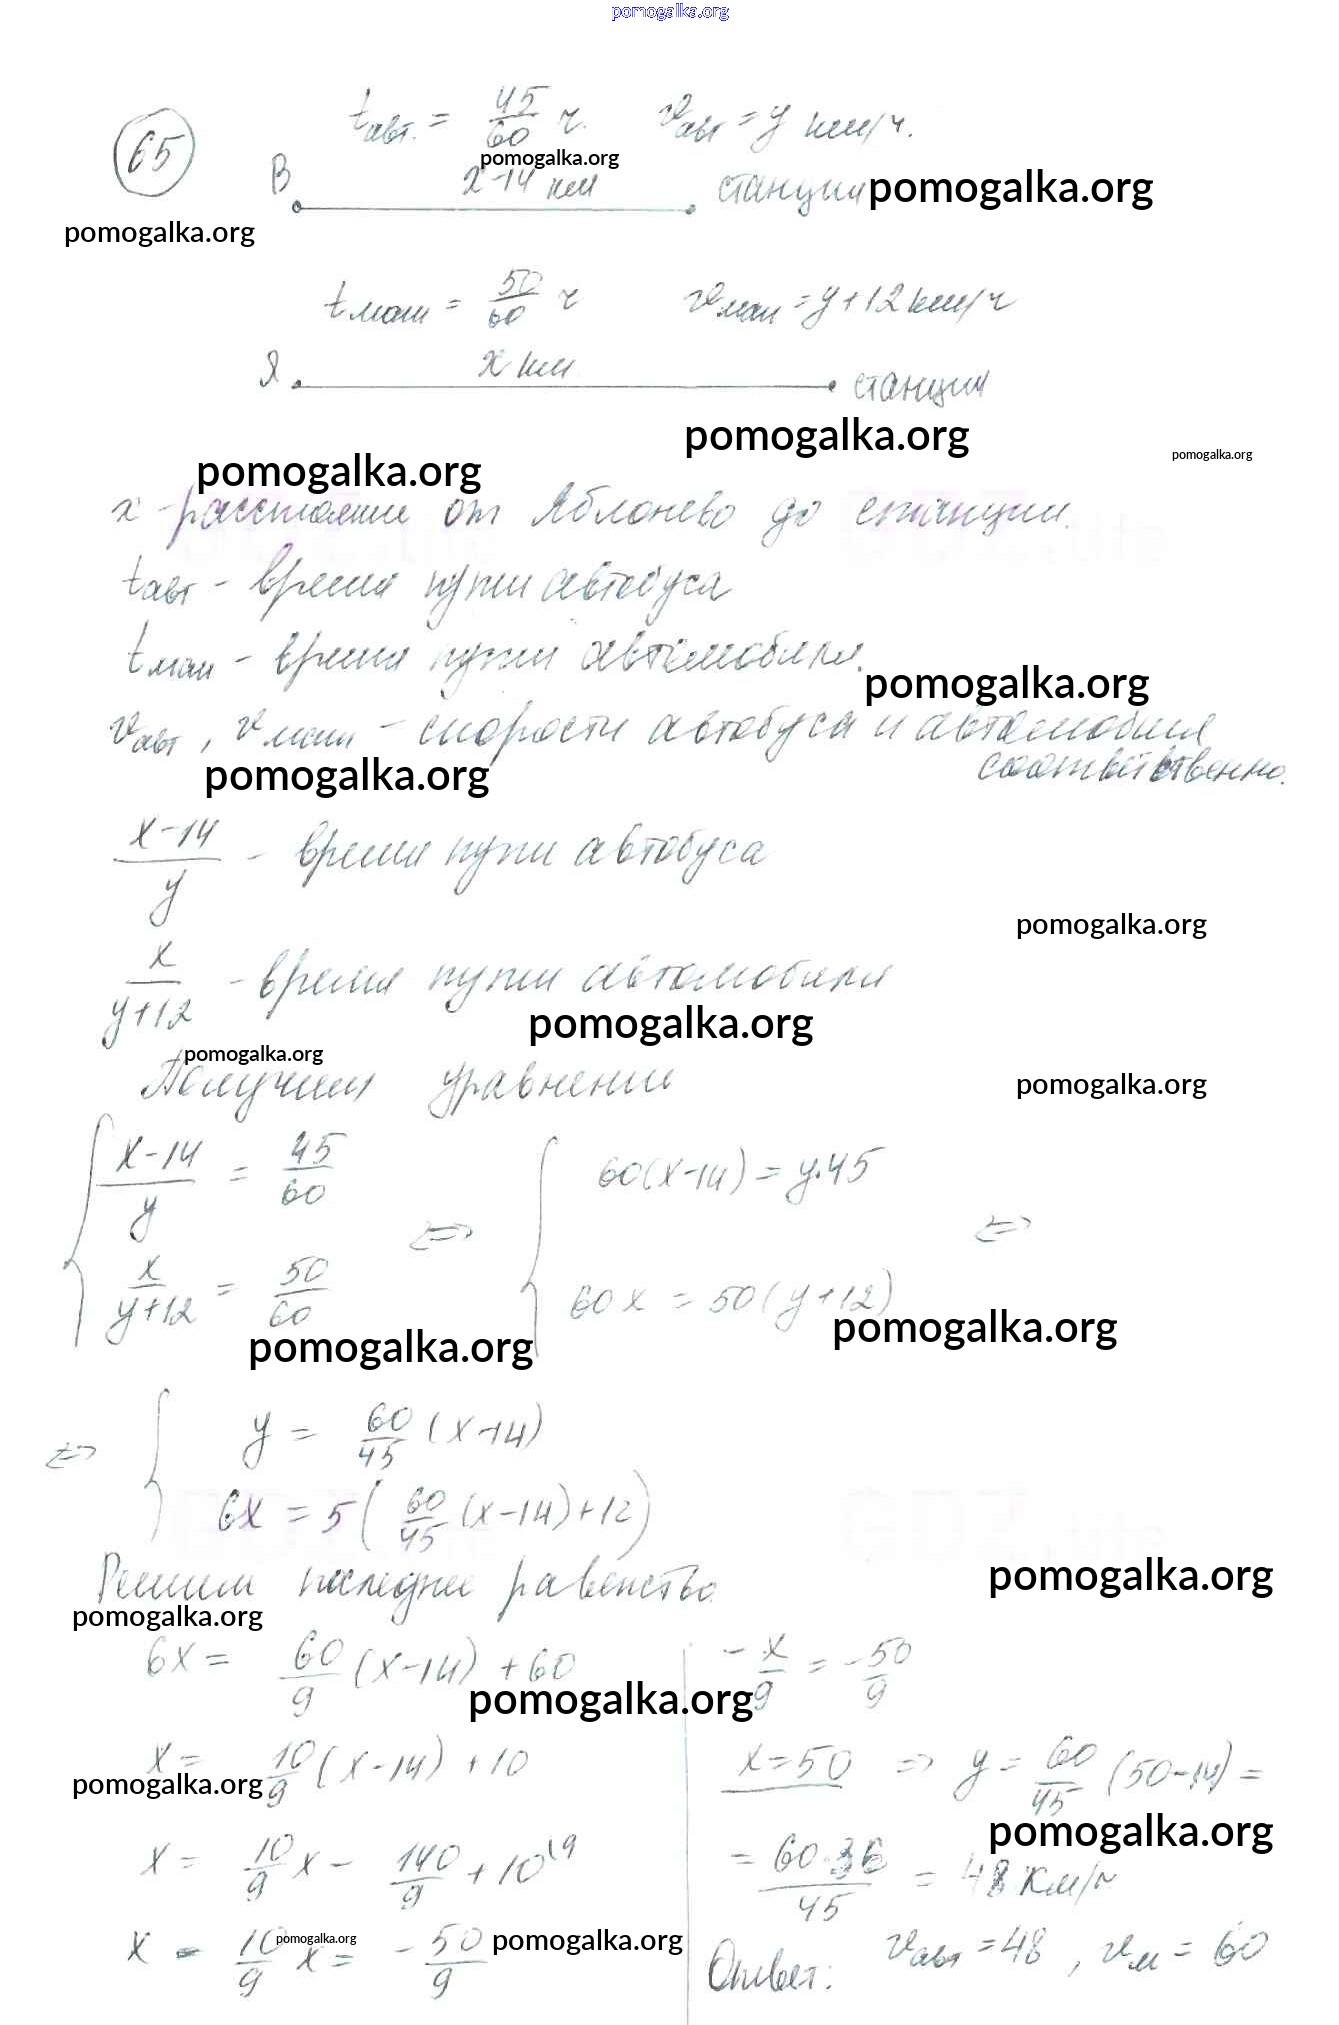 pomogalka.org
65
tавт. = 45/60 ч. vавт = y км/ч.
pomogalka.org
B x-14 км станция pomogalka.org
pomogalka.org
tмаш = 50/60 ч vмаш = y+12 км/ч
Я x км станция
pomogalka.org
pomogalka.org
pomogalka.org
x - расстояние от Яблонево до станции.
tавт - время пути автобуса
tмаш - время пути автомобиля.
pomogalka.org
vавт, vмаш - скорости автобуса и автомобиля
соответственно.
pomogalka.org
x-14/y - время пути автобуса
pomogalka.org
x/y+12 - время пути автомобиля
pomogalka.org
pomogalka.org
Получим уравнения
pomogalka.org
{ x-14/y = 45/60 <=> { 60(x-14) = y·45 <=>
x/y+12 = 50/60 60x = 50(y+12)
pomogalka.org
pomogalka.org
<=> { y = 60/45 (x-14)
6x = 5(60/45 (x-14)+12)
Решим последнее равенство
pomogalka.org
pomogalka.org
6x = 60/9 (x-14) + 60
pomogalka.org
x = 10/9 (x-14) + 10
pomogalka.org
x = 10/9 x - 140/9 + 10^(9
x - 10/9 x = - 50/9
pomogalka.org
pomogalka.org
- x/9 = - 50/9
x = 50 => y = 60/45 (50-14) =
pomogalka.org
= 60·36/45 = 48 км/ч
Ответ: vавт = 48, vм = 60